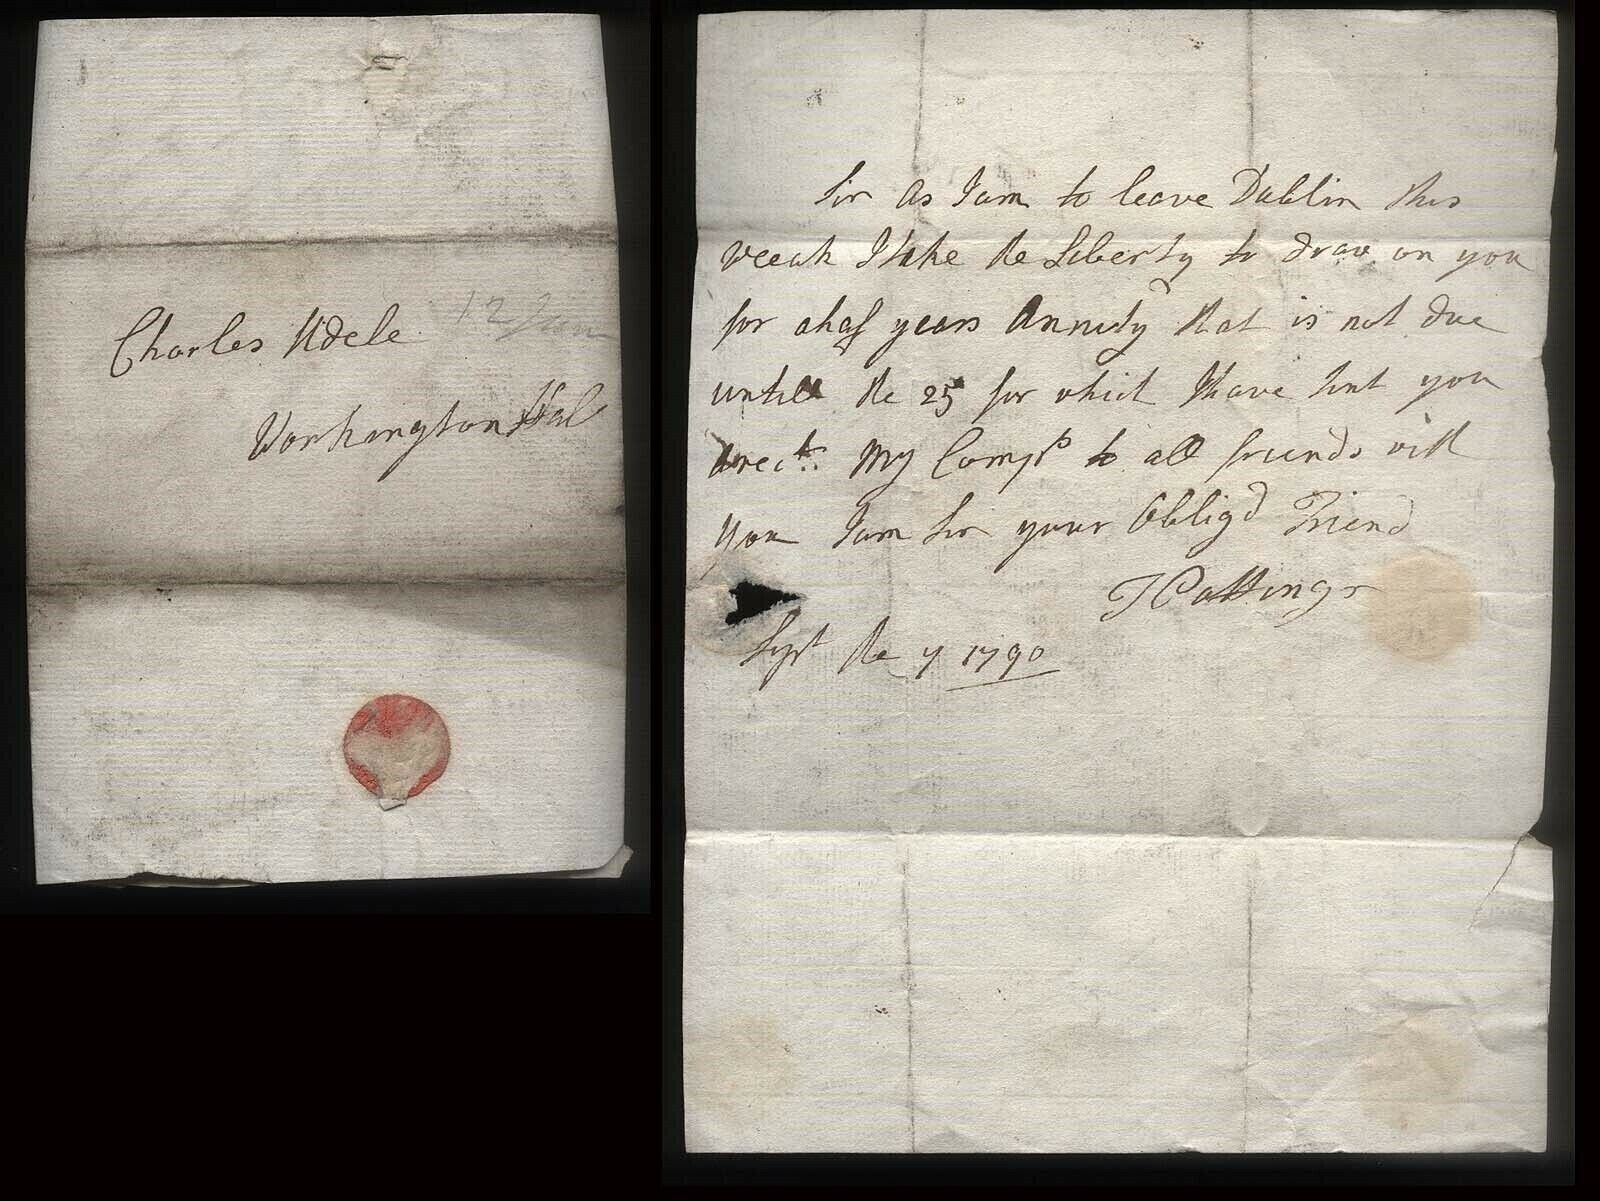 Charles Udele
Workington Hal
Sir As I am to leave Dublin this
weeak I take the Liberty to draw on you
for a haf years Annuity that is not due
untill the 25 for which I have sent you
My Comp.ts to all friends with
you I am Sir your Oblig'd Friend
Sept the 7 1790